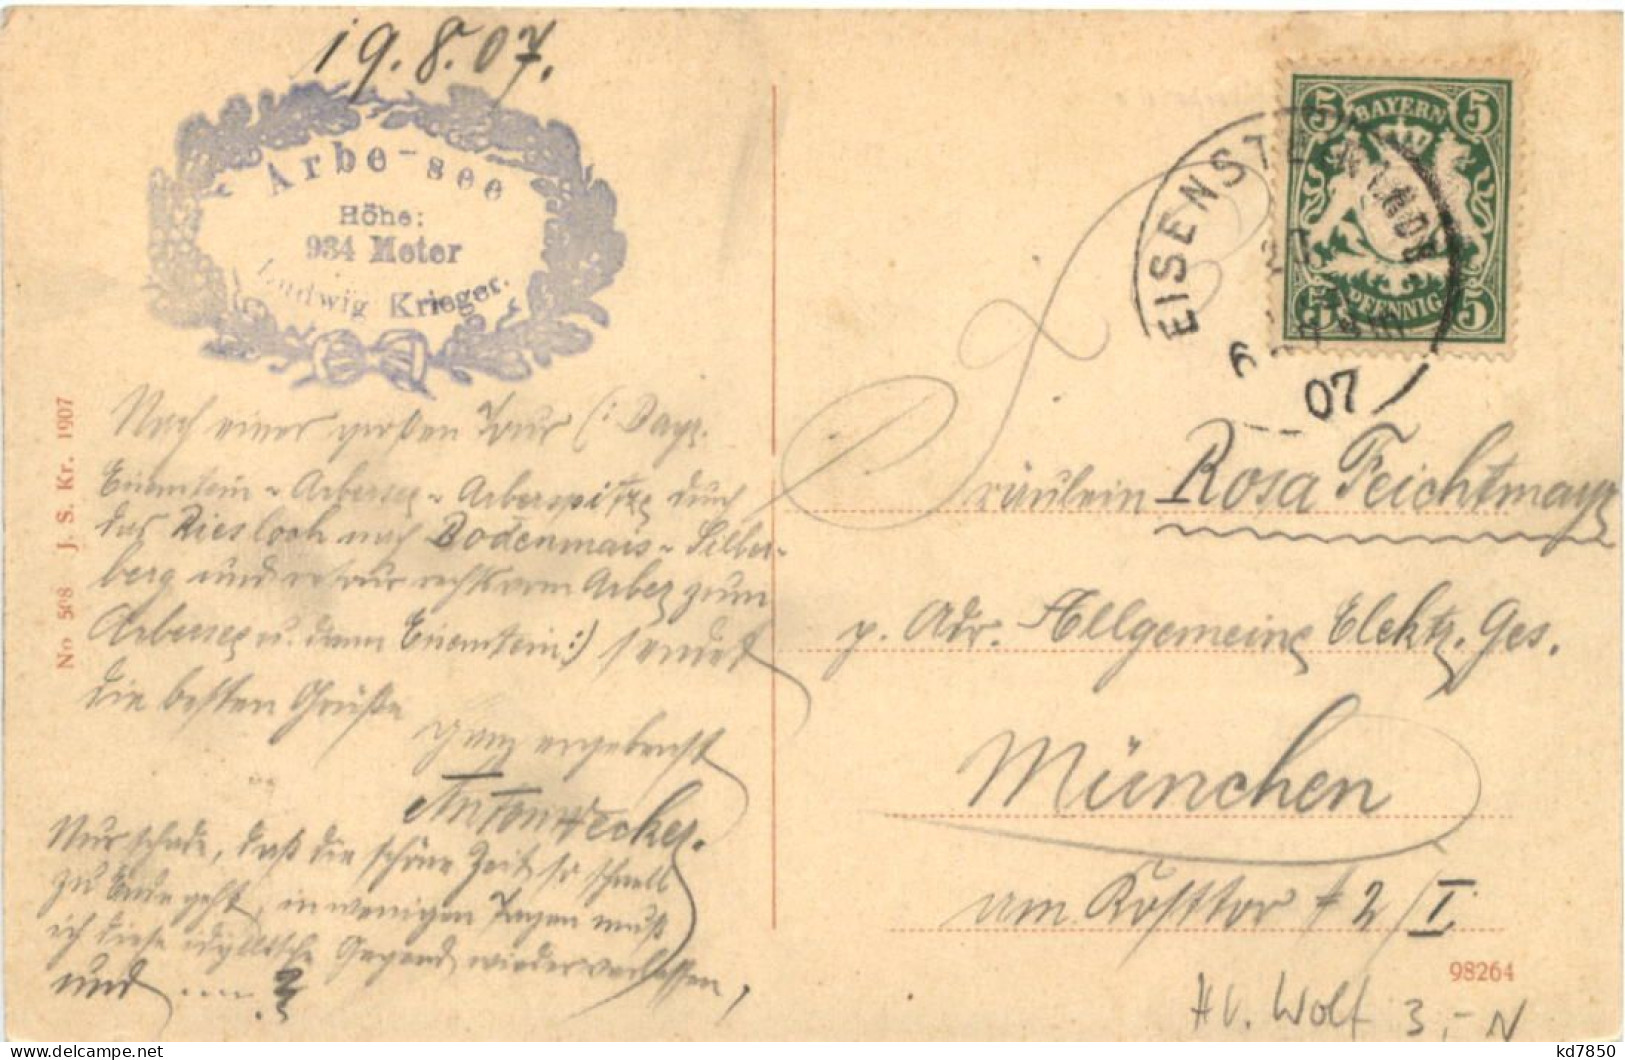 19.8.07.
Arbe-see
Höhe:
934 Meter
Ludwig Krieger.
BAYERN
5 5
5 PFENNIG 5
EISENSTEIN
07
Nach einer großen Tour (: Bayr.
Eisenstein - Arbersee - Arberspitze durch
das Riesloch nach Bodenmais - Silber-
berg und retour rechts vom Arber zum
Arbersee u. dann Eisenstein :) sendet
die besten Grüße
ganz ergebenst
Anton Hecker.
Nur schade, daß die schöne Zeit so schnell
zu Ende geht, in wenigen Tagen muß
ich diese idyllische Gegend wieder verlassen,
und .... ?
Fräulein Rosa Feichtmayr
p. Adr. Allgemeine Elektr. Ges.
München
am Kosttor # 2/I
No 508 J. S. Kr. 1907
98264
H v. Wolf 3,- N
kd7850